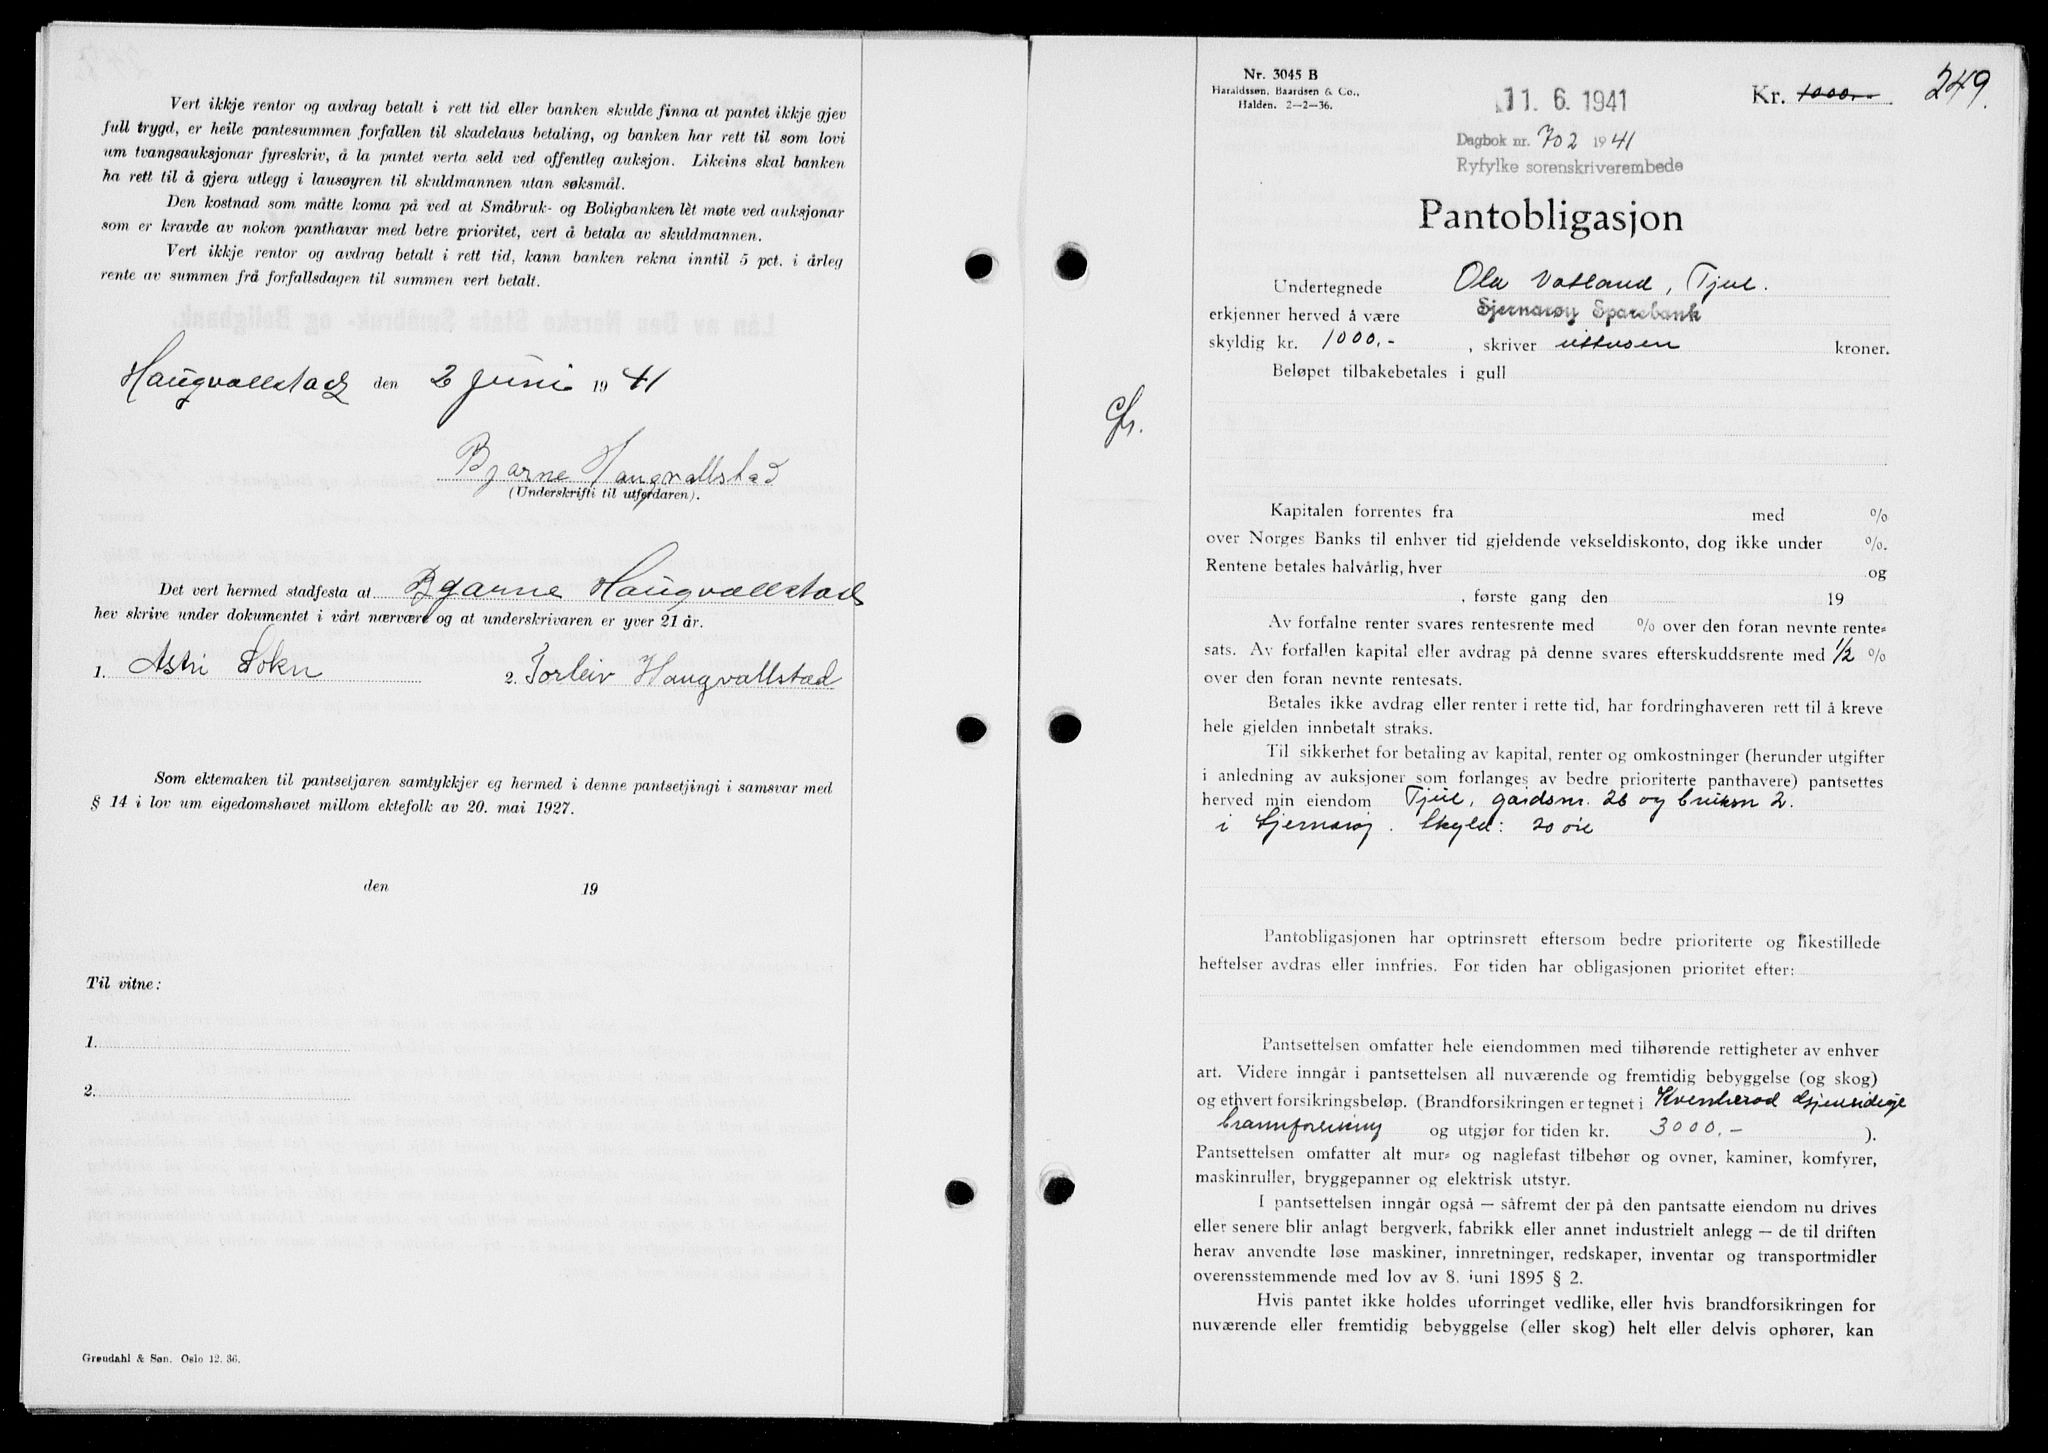 Vert ikkje rentor og avdrag betalt i rett tid eller banken skulde finna at pantet ikkje gjev
full trygd, er heile pantesummen forfallen til skadelaus betaling, og banken har rett til som lovi
um tvangsauksjonar fyreskriv, å la pantet verta seld ved offentleg auksjon. Likeins skal banken
ha rett til å gjera utlegg i lausøyren til skuldmannen utan søksmål.
Den kostnad som måtte koma på ved at Småbruk- og Boligbanken lèt møte ved auksjonar
som er kravde av nokon panthavar med betre prioritet, vert å betala av skuldmannen.
Vert ikkje rentor og avdrag betalt i rett tid, kann banken rekna inntil 5 pct. i årleg
rente av summen frå forfallsdagen til summen vert betalt.
Haugvallstad den 2 juni 1941
Bjarne Haugvallstad
(Underskrifti til utferdaren).
Det vert hermed stadfesta at Bjarne Haugvallstad
hev skrive under dokumentet i vårt nærvære og at underskrivaren er yver 21 år.
1. Astri Sokn 2. Torleiv Haugvallstad
Som ektemaken til pantsetjaren samtykkjer eg hermed i denne pantsetjingi i samsvar med
§ 14 i lov um eigedomshøvet millom ektefolk av 20. mai 1927.
den 19
Til vitne:
1.
2.
Grøndahl & Søn. Oslo 12. 36.
249.
Nr. 3045 B
Haraldssøn, Baardsen & Co.,
Halden. 2-2-36.
11. 6. 1941
Kr. 1000.-
Dagbok nr. 702 1941
Ryfylke sorenskriverembede
Pantobligasjon
Undertegnede Ola Vatland, Tjul.
erkjenner herved å være Sjernarøy Sparebank
skyldig kr. 1000.- , skriver ittusen kroner.
Beløpet tilbakebetales i gull
Kapitalen forrentes fra med %
over Norges Banks til enhver tid gjeldende vekseldiskonto, dog ikke under %.
Rentene betales halvårlig, hver og
, første gang den 19
Av forfalne renter svares rentesrente med % over den foran nevnte rente-
sats. Av forfallen kapital eller avdrag på denne svares efterskuddsrente med 1/2 %
over den foran nevnte rentesats.
Betales ikke avdrag eller renter i rette tid, har fordringhaveren rett til å kreve
hele gjelden innbetalt straks.
Til sikkerhet for betaling av kapital, renter og omkostninger (herunder utgifter
i anledning av auksjoner som forlanges av bedre prioriterte panthavere) pantsettes
herved min eiendom Tjul, gardsnr. 26 og bruksn 2.
i Sjernarøy. Skyld: 20 øre
Pantobligasjonen har optrinsrett eftersom bedre prioriterte og likestillede
heftelser avdras eller innfries. For tiden har obligasjonen prioritet efter:
Pantsettelsen omfatter hele eiendommen med tilhørende rettigheter av enhver
art. Videre inngår i pantsettelsen all nuværende og fremtidig bebyggelse (og skog)
og ethvert forsikringsbeløp. (Brandforsikringen er tegnet i Kvinnherad Gjensidige
brannforeining og utgjør for tiden kr. 3000.- ).
Pantsettelsen omfatter alt mur- og naglefast tilbehør og ovner, kaminer, komfyrer,
maskinruller, bryggepanner og elektrisk utstyr.
I pantsettelsen inngår også — såfremt der på den pantsatte eiendom nu drives
eller senere blir anlagt bergverk, fabrikk eller annet industrielt anlegg — de til driften
herav anvendte løse maskiner, innretninger, redskaper, inventar og transportmidler
overensstemmende med lov av 8. juni 1895 § 2.
Hvis pantet ikke holdes uforringet vedlike, eller hvis brandforsikringen for
nuværende eller fremtidig bebyggelse (eller skog) helt eller delvis ophører, kan